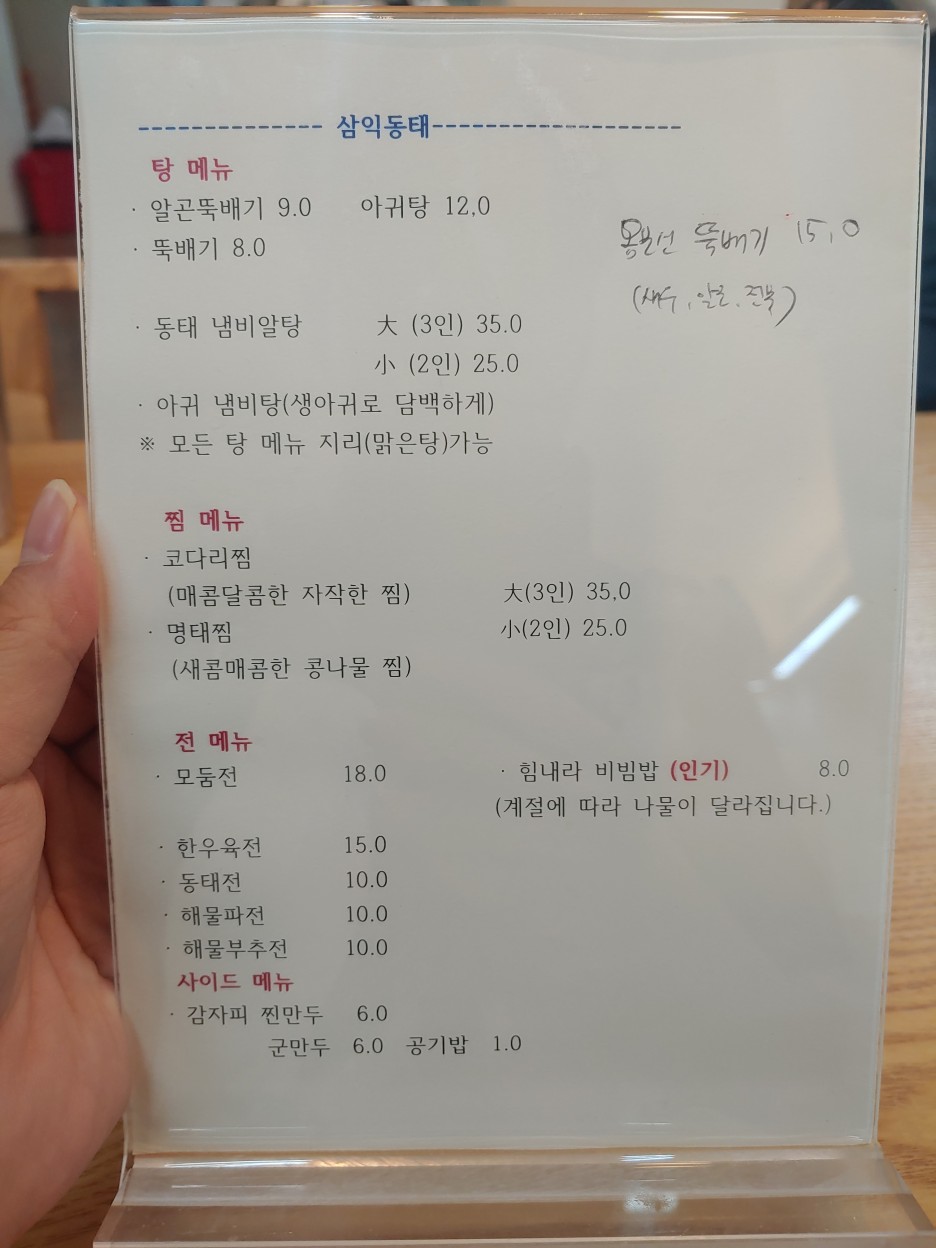 -------------- 삼익동태-------------------
탕 메뉴
· 알곤뚝배기 9.0 아귀탕 12,0
· 뚝배기 8.0
뚝배기 15,0
(새우, 알곤, 전복)
· 동태 냄비알탕 大 (3인) 35.0
小 (2인) 25.0
· 아귀 냄비탕(생아귀로 담백하게)
※ 모든 탕 메뉴 지리(맑은탕)가능
찜 메뉴
· 코다리찜
(매콤달콤한 자작한 찜) 大(3인) 35,0
· 명태찜 小(2인) 25.0
(새콤매콤한 콩나물 찜)
전 메뉴
· 모둠전 18.0 · 힘내라 비빔밥 (인기) 8.0
(계절에 따라 나물이 달라집니다.)
· 한우육전 15.0
· 동태전 10.0
· 해물파전 10.0
· 해물부추전 10.0
사이드 메뉴
· 감자피 찐만두 6.0
군만두 6.0 공기밥 1.0